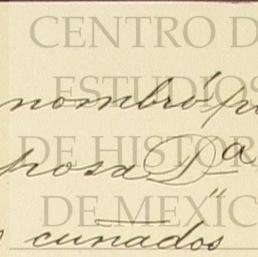 CENTRO D
ESTUDIOS
nombró p
DE HISTOR
posa Dª
DE MEXIC
cuñados